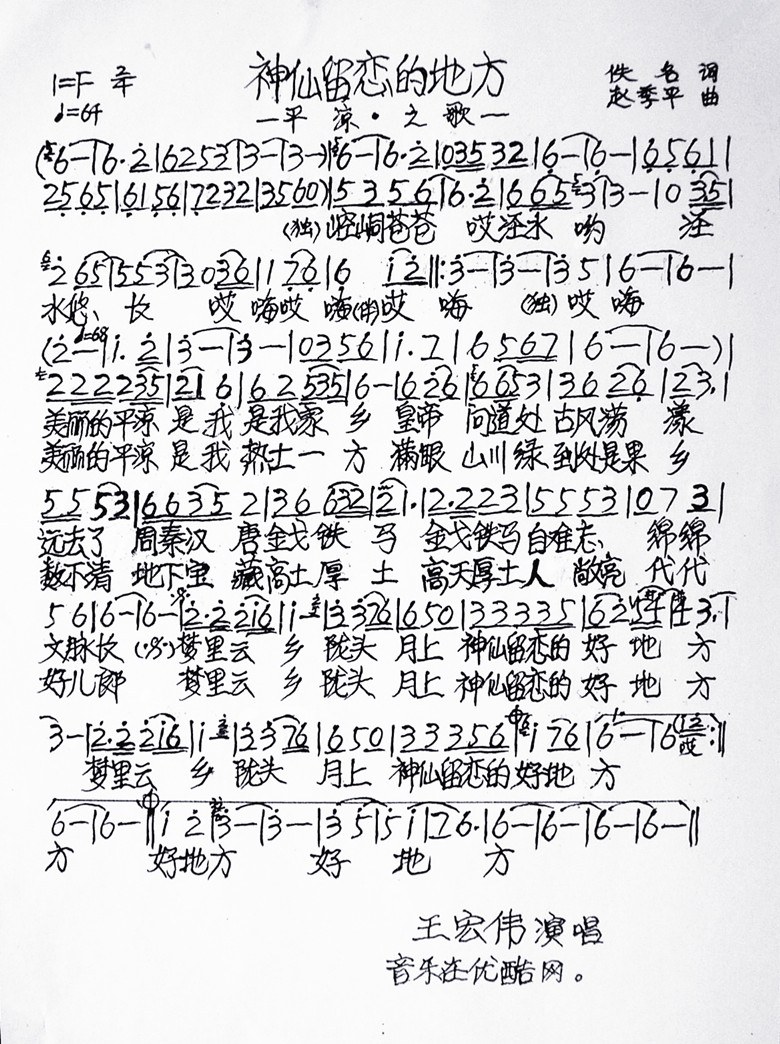 1=F 2/4 神仙留恋的地方 佚名 词
♩=64 —平凉·之歌— 赵季平 曲
(6—|6·2̇|6253|3—|3—)|6—|6·2̇|035 32|6—|6—|6561|
2565|6156|7232|3560)|5 3 56|6·2̇|665|3|3—|0 35|
(独)崆峒苍苍 哎泾水 哟 泾
2̇ 65|553|3036|1 76|6 1̇2̇‖:3̇—|3̇—|3̇5|6—|6—|
水悠、长 哎 嗨哎 嗨(俏)哎 嗨 (独)哎 嗨
♩=68
(2̇—|1̇·2̇|3̇—|3̇—|0356|1̇·7|6567|6—|6—)|
222235|2̇1 6|62535|6—|6 26|6653|36 26|23·|
美丽的平凉 是我 是我家 乡 皇帝 问道处 古风荡 漾
美丽的平凉 是我 热土一 方 满眼 山川绿 到处是果 乡
55 53|6635 2|36 632|2̇1·|2·223|5553|07 3|
远去了 周秦汉 唐金戈铁 马 金戈铁马自难忘、 绵绵
数不清 地下宝 藏高土厚 土 高天厚土人 敞亮 代代
56|6—|6—|2̇·2̇2̇1̇6|1̇|3̇3̇76|650|33335|625|3·|
文脉长 梦里云 乡 陇头 月上 神仙留恋的 好 地 方
好儿郎 梦里云 乡 陇头 月上 神仙留恋的 好 地 方
3—|2̇·2̇2̇1̇6|1̇|3̇3̇76|650|33356|1̇76|6—|6 1̇2̇:‖
梦里云 乡 陇头 月上 神仙留恋的好地 方 哎
6—|6—‖1̇ 2̇|3̇—|3̇—|3̇5|51̇|76·|6—|6—|6—|6—‖
方 好地方 好 地 方
王宏伟演唱
音乐在优酷网。